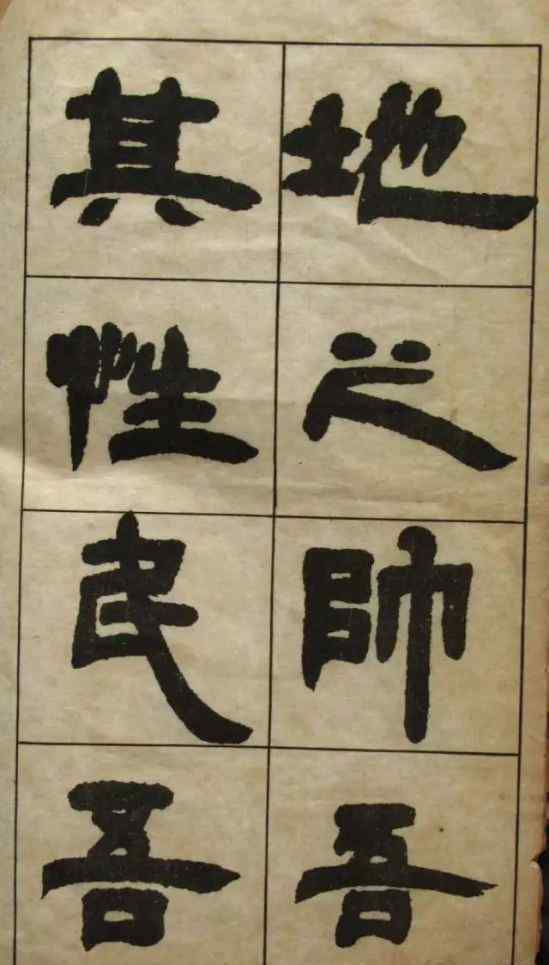 地之帥吾
其性民吾